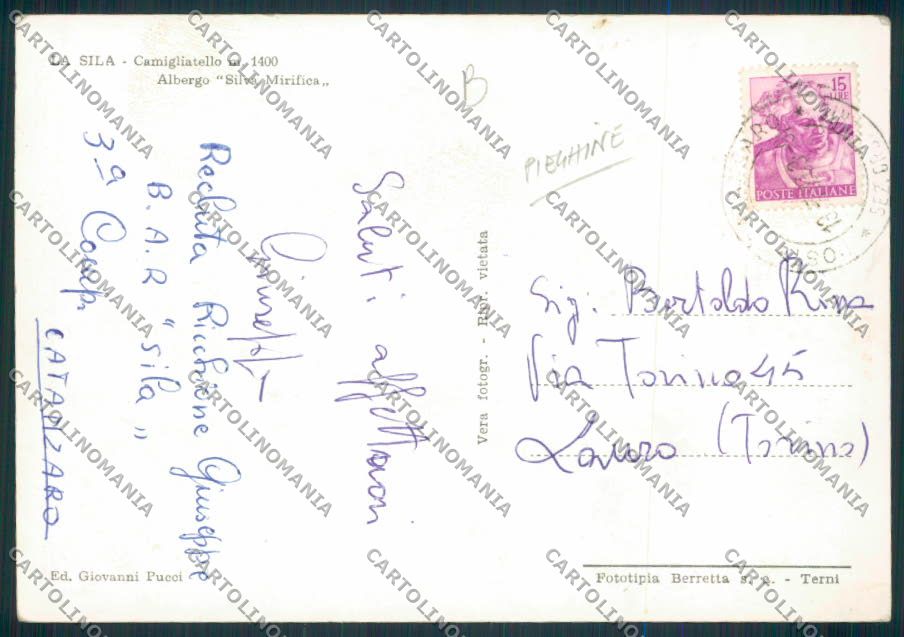 LA SILA - Camigliatello m. 1400
Albergo "Silva Mirifica„
B
PIEGHINE
15
LIRE
POSTE ITALIANE
Saluti affettuosi
Giuseppe
Recluta Giuseppe
B.A.R "Sila„
3ª Comp.
CATANZARO
Vera fotogr. - Ripr. vietata
Sig. Bertoldo Rina
Via Torino 45
(Torino)
Ed. Giovanni Pucci
Fototipia Berretta s. p. a. - Terni
CARTOLINOMANIA